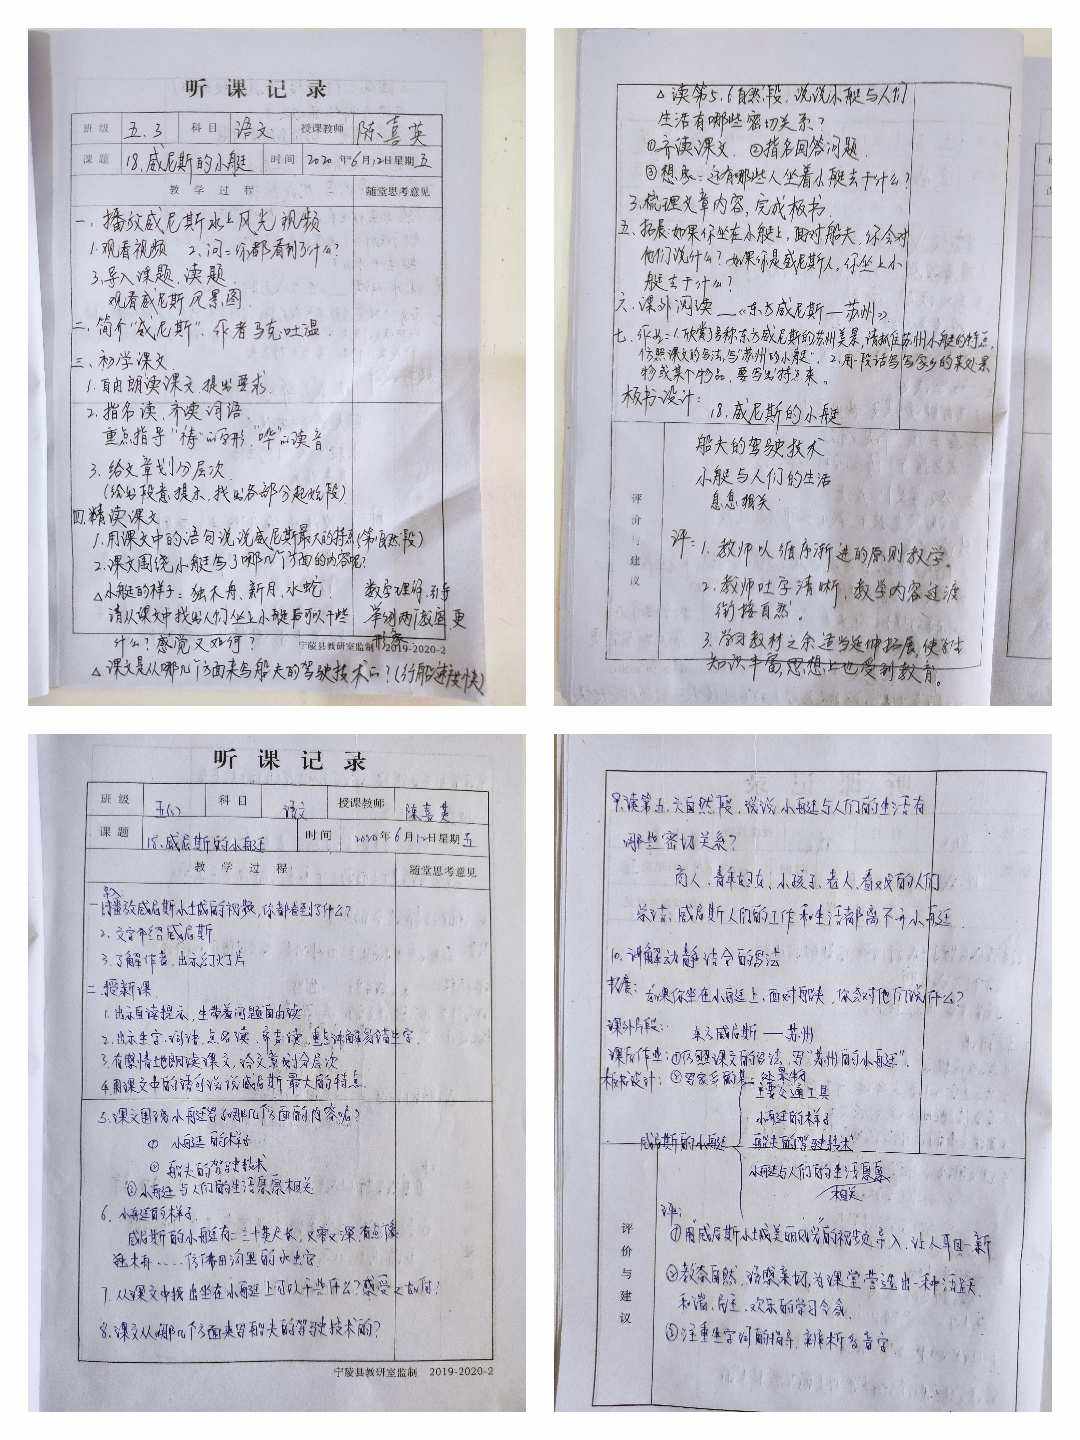 听课记录
班级 五.3 科目 语文 授课教师 陈喜英
课题 18.威尼斯的小艇 时间 2020年6月12日星期五
教学过程 随堂思考意见
一、播放威尼斯水上风光视频
1.观看视频 2.问:你都看到了什么?
3.导入课题,读题
观看威尼斯风景图
二、简介"威尼斯"、作者马克吐温.
三、初学课文
1.自由朗读课文,提出要求.
2.指名读,齐读词语.
重点指导"祷"的字形,"哗"的读音.
3.给文章划分层次.
(给出段意提示,找出各部分起始段)
四.精读课文
1.用课文中的语句说说威尼斯最大的特点(第1自然段)
2.课文围绕小艇写了哪几个方面的内容呢?
△小艇的样子:独木舟,新月,水蛇.
请从课文中找出人们坐上小艇后可以干些
什么?感觉又如何?
举例 更
形象
宁陵县教研室监制 2019-2020-2
△课文是从哪几个方面来写船夫的驾驶技术的?(行船速度快)
△读第5.6自然段,说说小艇与人们
生活有哪些密切关系?
①齐读课文 ②指名回答问题.
③想象:还有哪些人坐着小艇去干什么?
3.梳理文章内容,完成板书.
五、拓展:如果你坐在小艇上,面对船夫,你会对
他们说什么?如果你是威尼斯人,你坐上小
艇去干什么?
六、课外阅读——《东方威尼斯—苏州》
七、作业:1.欣赏了号称东方威尼斯的苏州美景,请抓住苏州小艇的特点,
仿照课文的写法,写"苏州的小艇". 2.用一段话写写家乡的某处景
物或某个物品,要写出特点来.
板书设计:
18.威尼斯的小艇
船夫的驾驶技术
小艇与人们的生活
息息相关
评价与建议
评:1.教师以循序渐进的原则教学.
2.教师吐字清晰,教学内容过渡
衔接自然.
3.学习教材之余适当延伸拓展,使学生
知识丰富,思想上也受到教育.
听课记录
班级 五(3) 科目 语文 授课教师 陈喜英
课题 18.威尼斯的小艇 时间 2020年6月12日星期五
教学过程 随堂思考意见
一导入
1.播放威尼斯水上城的视频,你都看到了什么?
2.文字介绍威尼斯
3.了解作者,出示幻灯片
二.授新课
1.出示自读提示,生带着问题自由读
2.出示生字.词语,点名读,齐读,重点讲解易错生字.
3.有感情地朗读课文,给文章划分层次
4.用课文中的语句说说威尼斯最大的特点.
5.课文围绕小艇写了哪几个方面的内容呢?
① 小艇的样子
② 船夫的驾驶技术
③ 小艇与人们的生活息息相关
6.小艇的样子.
威尼斯的小艇有二三十英尺长,又窄又深,有点像
独木舟……仿佛田沟里的水蛇.
7.从课文中找出坐在小艇上可以干些什么?感受又如何?
8.课文从哪几个方面来写船夫的驾驶技术的?
宁陵县教研室监制 2019-2020-2
9.读第五、六自然段,说说小艇与人们的生活有
哪些密切关系?
商人、青年妇女、小孩子、老人、看戏的人们
总结:威尼斯人们的工作和生活都离不开小艇.
10.讲解动静结合的写法
拓展: 如果你坐在小艇上,面对船夫,你会对他们说什么?
课外片段: 东方威尼斯——苏州
课后作业:①仿照课文的写法,写"苏州的小艇".
②写家乡的某一处景物
板书设计:
主要交通工具
小艇的样子
威尼斯的小艇 船夫的驾驶技术
小艇与人们的生活息息
相关
评价与建议
评:
①用"威尼斯水上城美丽风光"的视频导入,让人耳目一新
②教态自然,语感亲切,为课堂营造出一种活跃、
和谐、民主、欢乐的学习气氛.
③注重生字词的指导,辨析多音字.